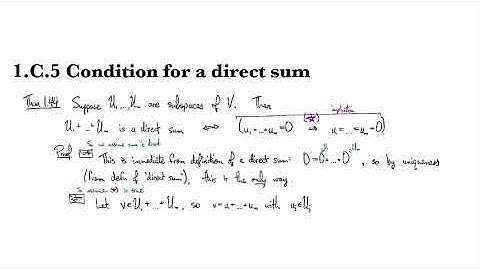 1.C.5 Condition for a direct sum
Thm 1.44 Suppose U₁,...,Uₘ are subspaces of V. Then
implication
(★)
U₁+...+Uₘ is a direct sum ⟺ (u₁+...+uₘ=0 ⇒ u₁=...=uₘ=0)
So we assume sum is direct
Proof ⇒ This is immediate from definition of a direct sum: 0=0+...+0, so by uniqueness
U₁ Uₘ
(from defn of "direct sum"), this is the only way.
So assume (★) is true
⇐ Let v∈U₁+...+Uₘ, so v=u₁+...+uₘ with uⱼ∈Uⱼ